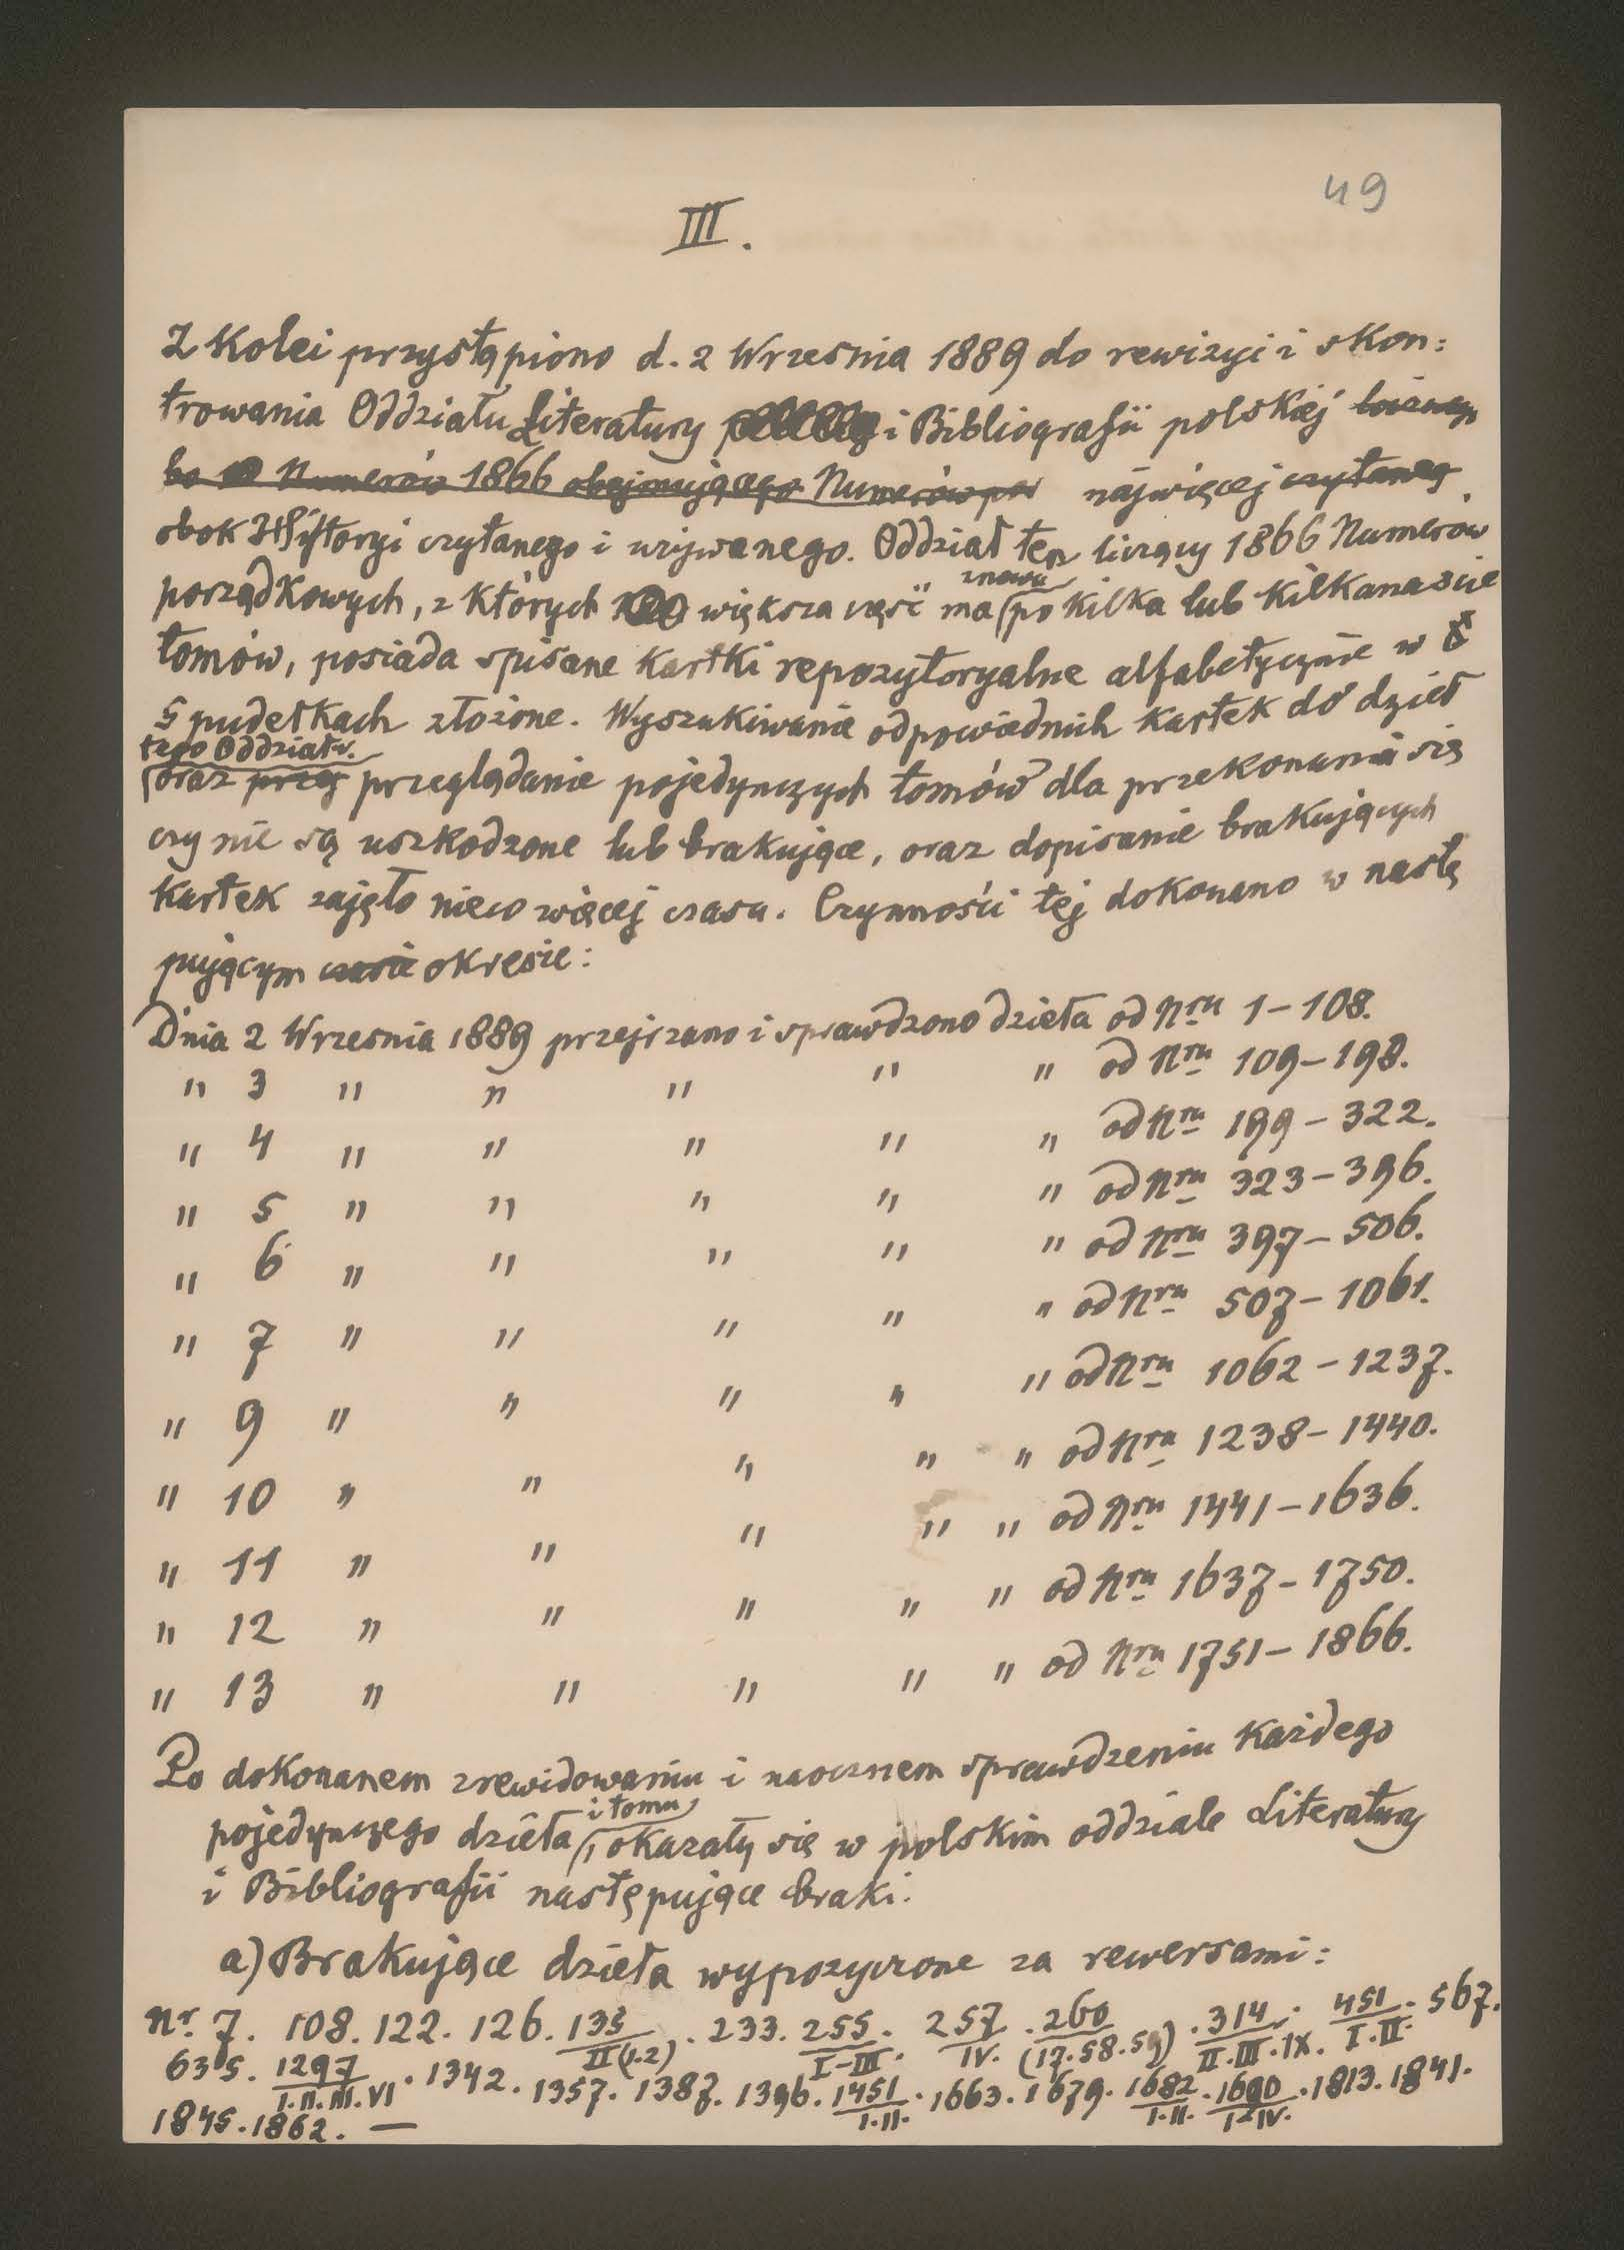 49
III.
Z kolei przystąpiono d. 2 Wrzesnia 1889 do rewizyi i skon:
trowania Oddziału Literatury i Bibliografii polskiej
No Numerów 1866 obejmującego Numerów po najwięcej czytaneg
obok Historyi czytanego i używanego. Oddział ten liczący 1866 Numerów
znowu
porządkowych, z których większa część ma po kilka lub kilkanascie
tomów, posiada spisane kartki repozytoryalne alfabetycznie w
5 pudełkach złożone. Wyszukiwanie odpowiednich kartek do dzieł
tego Oddziału.
oraz przeg przeglądanie pojedynczych tomów dla przekonania się
czy nie są uszkodzone lub brakujące, oraz dopisanie brakujących
kartek zajęło nieco więcej czasu. Czynności tej dokonano w nastę
pującym czasie okresie:
Dnia 2 Wrzesnia 1889 przejrzano i sprawdzono dzieła od Nru 1-108.
" 3 " " " " " od Nru 109-198.
" 4 " " " " " od Nru 199-322.
" 5 " " " " " od Nru 323-396.
" 6 " " " " " od Nru 397-506.
" 7 " " " " " od Nru 507-1061.
" 9 " " " " " od Nru 1062-1237.
" 10 " " " " " od Nru 1238-1440.
" 11 " " " " " od Nru 1441-1636.
" 12 " " " " " od Nru 1637-1750.
" 13 " " " " " od Nru 1751-1866.
Po dokonanem zrewidowaniu i naocznem sprawdzeniu każdego
i tomu
pojedynczego dzieła, okazały się w polskim oddziale Literatury
i Bibliografii następujące braki:
a) Brakujące dzieła wypożyczone za rewersami:
Nr. 7. 108. 122. 126. 135 . 233. 255 . 257 . 260 . 314 . 451 . 567.
II(1.2) I-III. IV. (17.58.59) II.III.IX. I.II.
635. 1297 . 1342. 1357. 1387. 1396. 1451 . 1663. 1679. 1682 . 1690 . 1813. 1841.
I.II.III.VI I.II. I.II. I-IV.
1845. 1862. —